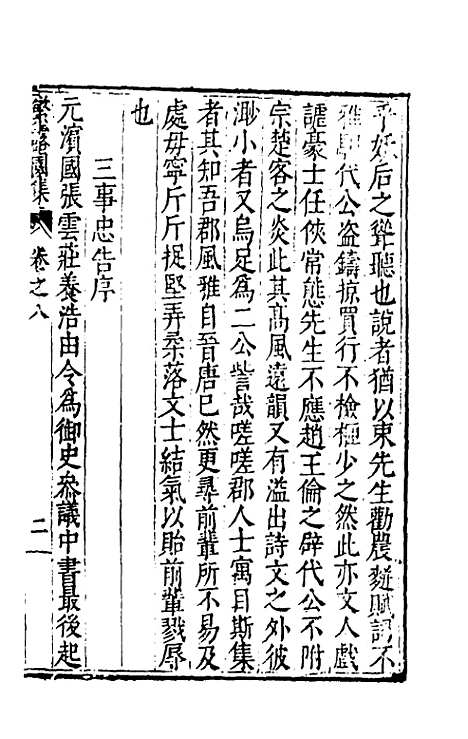 乎妒后之聳聽也說者猶以束先生勸農麪賦詞不
雅馴代公盜鑄掠買行不檢極少之然此亦文人戲
謔豪士任俠常態先生不應趙王倫之辟代公不附
宗楚客之炎此其高風遠韻又有溢出詩文之外彼
渺小者又烏足為二公訾哉嗟嗟郡人士寓目斯集
者其知吾郡風雅自晉唐已然更尋前輩所不易及
處毋寧斤斤捉堅弄柔落文士結氣以貽前輩戮辱
也
三事忠告序
元濱國張雲莊養浩由令為御史叅議中書最後起
繁露園集 卷之八 二